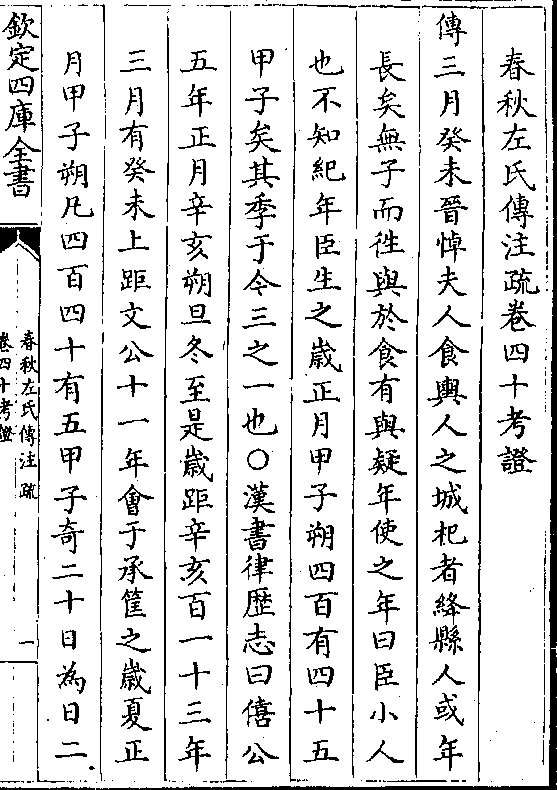 春秋左氏傳注疏卷四十考證
傳三月癸未晉悼夫人食輿人之城杞者絳縣人或年
長矣無子而徃與於食有與疑年使之年曰臣小人
也不知紀年臣生之歳正月甲子朔四百有四十五
甲子矣其季于今三之一也○漢書律歴志曰僖公
五年正月辛亥朔旦冬至是歳距辛亥百一十三年
三月有癸未上距文公十一年會于承筐之歳夏正
月甲子朔凡四百四十有五甲子奇二十日為日二
欽定四庫全書
春秋左氏傳注疏
卷四十考證
一